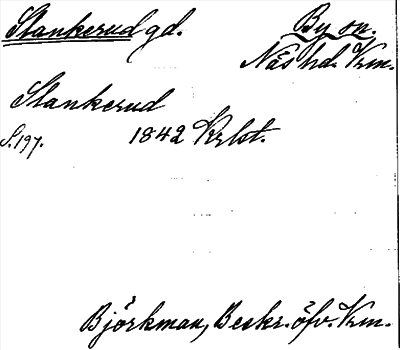 Stankerud gd.
By sn.
Näs hd. Vrm.
Stankerud
S. 197.
1842 Krlst.
Björkman, Beskr. öfv. Vrm.